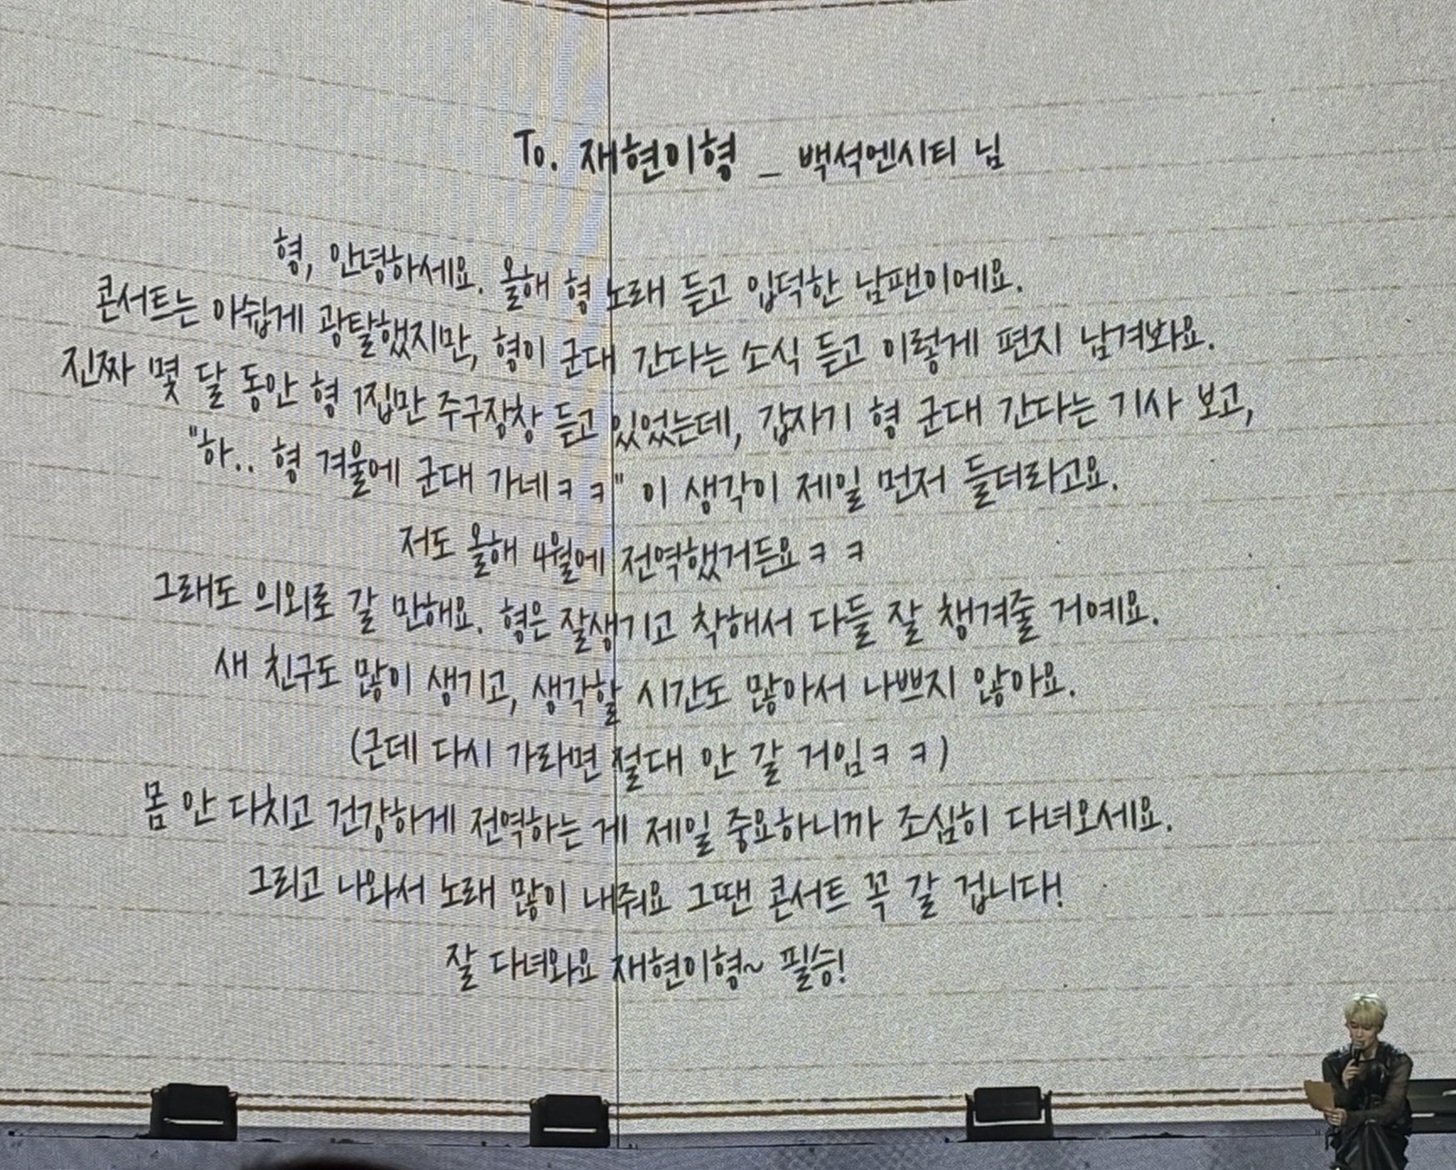 To. 재현이형 _ 백석엔시티 님
형, 안녕하세요. 올해 형 노래 듣고 입덕한 남팬이에요.
콘서트는 아쉽게 광탈했지만, 형이 군대 간다는 소식 듣고 이렇게 편지 남겨봐요.
진짜 몇 달 동안 형 1집만 주구장창 듣고 있었는데, 갑자기 형 군대 간다는 기사 보고,
"하.. 형 겨울에 군대 가네ㅋㅋ" 이 생각이 제일 먼저 들더라고요.
저도 올해 4월에 전역했거든요ㅋㅋ
그래도 의외로 갈 만해요. 형은 잘생기고 착해서 다들 잘 챙겨줄 거예요.
새 친구도 많이 생기고, 생각할 시간도 많아서 나쁘지 않아요.
(근데 다시 가라면 절대 안 갈 거임ㅋㅋ)
몸 안 다치고 건강하게 전역하는 게 제일 중요하니까 조심히 다녀오세요.
그리고 나와서 노래 많이 내줘요 그땐 콘서트 꼭 갈 겁니다!
잘 다녀와요 재현이형~ 필승!